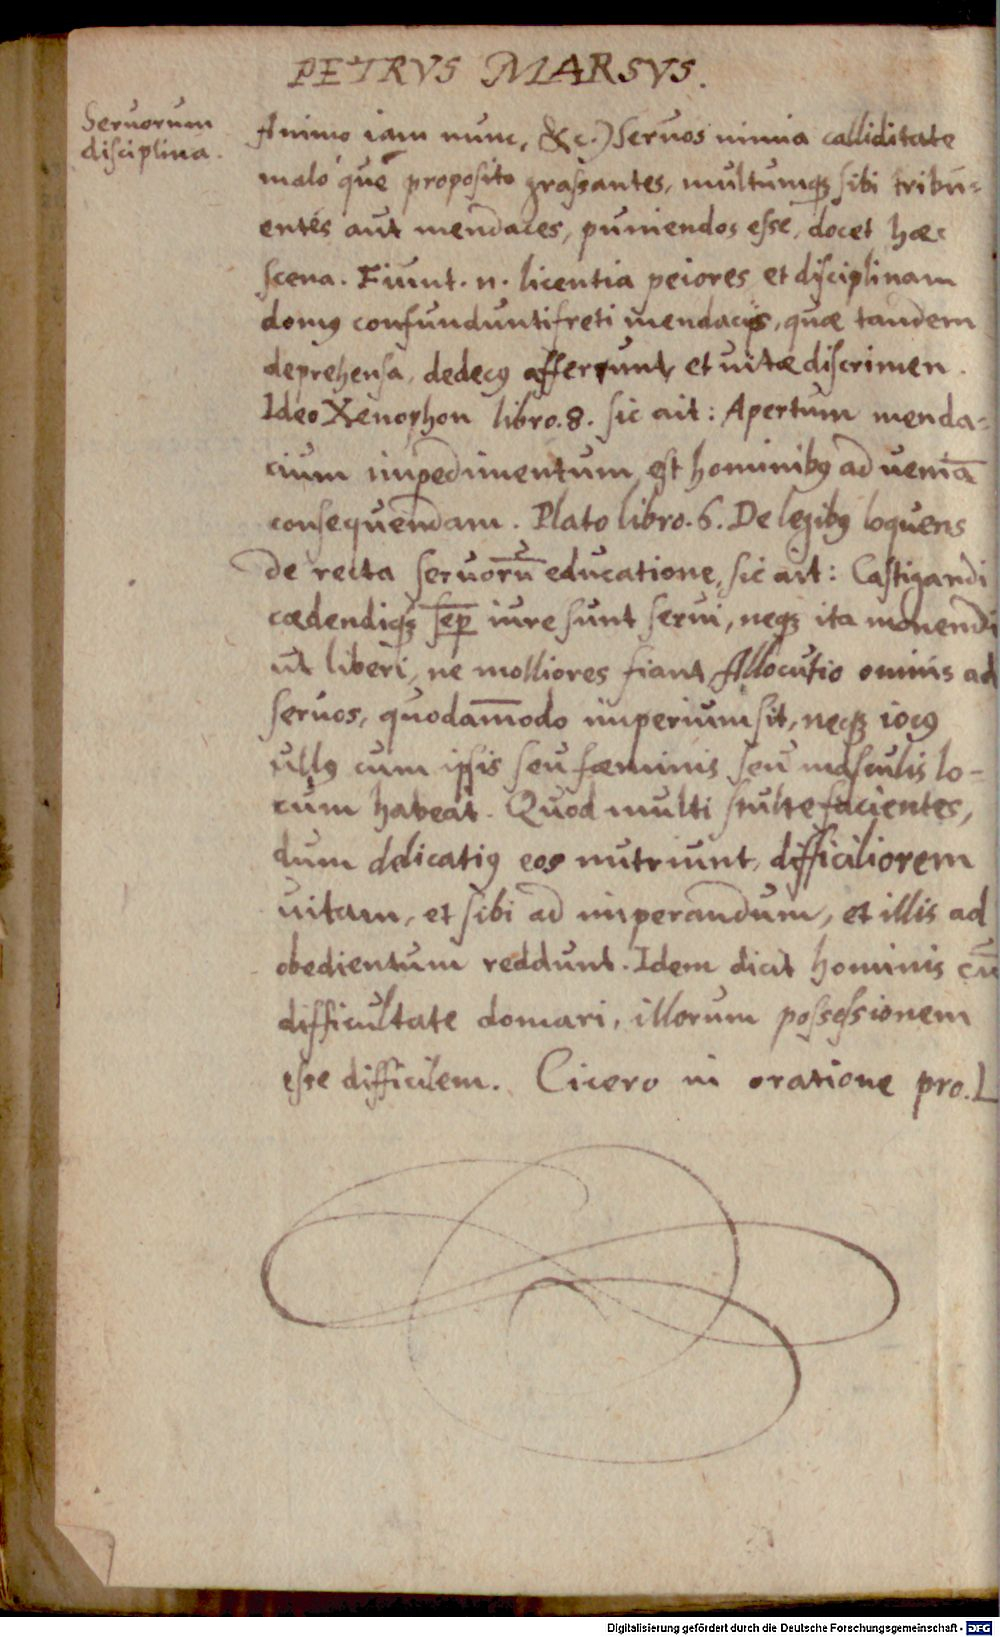 PETRVS MARSVS.
Seruorum
disciplina.
Animo iam nunc, &c.) Seruos nimia calliditate
malo que proposito grassantes, multumqꝫ sibi tribu-
entes aut mendaces, puniendos esse, docet hæc
scena. Fiunt. n. licentia peiores et disciplinam
domꝰ confundunt freti mendacijs, quæ tandem
deprehensa, dedecꝰ afferrunt, et uitæ discrimen.
Ideo Xenophon libro. 8. sic ait: Apertum menda-
cium impedimentum est hominibꝰ ad ueniā
consequendam. Plato libro. 6. De legibꝰ loquens
de recta seruorū educatione, sic ait: Castigandi
cædendiqꝫ sēp iure sunt serui, neqꝫ ita monendi
ut liberi, ne molliores fiant, Allocutio omnis ad
seruos, quodam̄odo imperium sit, neqꝫ iocꝰ
ullꝰ cum ipsis seu fæminis seu masculis lo-
cum habeat. Quod multi stulte facientes,
dum delicatiꝰ eos nutriunt, difficiliorem
uitam, et sibi ad imperandum, et illis ad
obedientum reddunt. Idem dicit hominis cū
difficultate domari, illorum possessionem
esse difficilem. Cicero in oratione pro. L
Digitalisierung gefördert durch die Deutsche Forschungsgemeinschaft - DFG